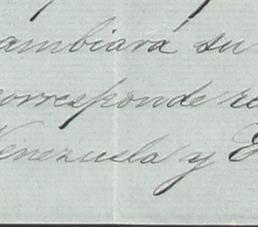 ambiará su
corresponde re
Venezuela y E